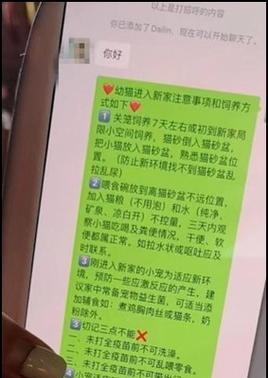 以上是打招呼的内容
你已添加了Dailin，现在可以开始聊天了。
你好
❤️幼猫进入新家注意事项和饲养方
式如下❤️
1️⃣关笼饲养7天左右或初到新家局
限小空间饲养，猫砂倒入猫砂盆，
把小猫放入猫砂盆，熟悉猫砂盆位
置。（防止新环境找不到猫砂盆乱
拉乱尿）
2️⃣喂食碗放到离猫砂盆不远位置，
加入猫粮（不用泡）和水（纯净、
矿泉、凉白开）不控量，三天内观
察小猫吃喝及粪便情况，干便、软
便都属正常。如拉水状或呕吐应及
时联系。
3️⃣刚进入新家的小宠为适应新环
境，预防一些应激反应的产生，建
议家中常备宠物益生菌，可适当添
加辅食如：煮鸡胸肉丝或猫条，奶
粉除外。
3️⃣切记三点不能❌
一、未打全疫苗前不可洗澡。
二、未打全疫苗前不可乱喂零食。